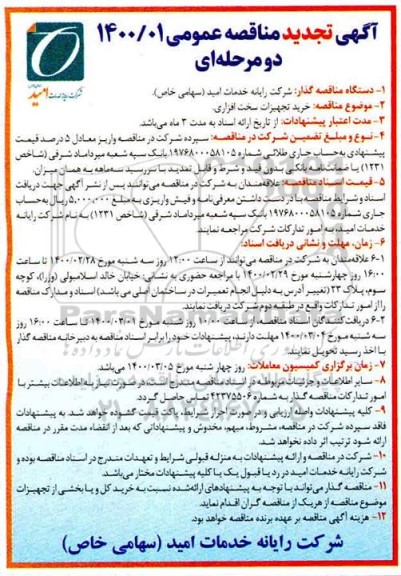 آگهی تجدید مناقصه عمومی ۱۴۰۰/۰۱
دو مرحله‌ای
شرکت رایانه خدمات امید
۱- دستگاه مناقصه گذار: شرکت رایانه خدمات امید (سهامی خاص).
۲- موضوع مناقصه: خرید تجهیزات سخت افزاری.
۳- مدت اعتبار پیشنهادات: از تاریخ ارائه اسناد به مدت ۳ ماه می‌باشد.
۴- نوع و مبلغ تضمین شرکت در مناقصه: سپرده شرکت در مناقصه واریز معادل ۵ درصد قیمت
پیشنهادی به‌حساب جاری طلائی شماره ۱۹۷۶۸۰۰۰۵۸۱۰۵ بانک سپه شعبه میرداماد شرقی (شاخص
۱۲۳۱) یا ضمانت‌نامه بانکی بدون قید و شرط و قابل تمدید با سررسید سه‌ماهه به همان میزان.
۵- قیمت اسناد مناقصه: علاقه‌مندان به شرکت در مناقصه می‌توانند پس از نشر آگهی جهت دریافت
اسناد و شرایط مناقصه با در دست داشتن معرفی‌نامه و فیش واریزی به مبلغ ۵,۰۰۰,۰۰۰ ریال به‌حساب
جاری شماره ۱۹۷۶۸۰۰۰۵۸۱۰۵ بانک سپه شعبه میرداماد شرقی (شاخص ۱۲۳۱) به نام شرکت رایانه
خدمات امید به امور تدارکات شرکت مراجعه نمایند.
۶- زمان، مهلت و نشانی دریافت اسناد:
۶-۱ علاقه‌مندان به شرکت در مناقصه می‌توانند از ساعت ۱۲:۰۰ روز سه شنبه مورخ ۱۴۰۰/۰۲/۲۸ تا ساعت
۱۶:۰۰ روز چهارشنبه مورخ ۱۴۰۰/۰۲/۲۹ با مراجعه حضوری به نشانی: خیابان خالد اسلامبولی (وزرا)، کوچه
سوم، پلاک ۲۳ (تغییر آدرس به دلیل انجام تعمیرات در ساختمان قبلی می باشد) اسناد و مدارک مناقصه
را از امور تدارکات واقع در طبقه دوم شرکت دریافت نمایند.
۶-۲ دریافت‌کنندگان اسناد مناقصه، از ساعت ۱۰:۰۰ روز شنبه مورخ ۱۴۰۰/۰۳/۰۱ تا ساعت ۱۶:۰۰ روز
سه شنبه مورخ ۱۴۰۰/۰۳/۰۴ مهلت دارند، پیشنهادات خود را برابر اسناد مناقصه به دبیرخانه مناقصه گذار
با اخذ رسید تحویل نمایند.
۷- زمان برگزاری کمیسیون معاملات: روز چهار شنبه مورخ ۱۴۰۰/۰۳/۰۵ می‌باشد.
۸- سایر اطلاعات و جزئیات مربوطه در اسناد مناقصه مندرج است، در صورت نیاز به اطلاعات بیشتر با
امور تدارکات مناقصه گذار به شماره ۴۲۳۷۵۵۰۶ تماس حاصل گردد.
۹- کلیه پیشنهادات واصله ارزیابی و در صورت احراز شرایط، پاکت قیمت گشوده خواهد شد. به پیشنهادات
فاقد سپرده شرکت در مناقصه، مشروط، مبهم، مخدوش و پیشنهاداتی که بعد از انقضاء مدت مقرر در مناقصه
ارائه شود ترتیب اثر داده نخواهد شد.
۱۰- شرکت در مناقصه و ارائه پیشنهادات به منزله قبولی شرایط و تعهدات مندرج در اسناد مناقصه بوده و
شرکت رایانه خدمات امید در رد یا قبول یک یا کلیه پیشنهادات مختار می‌باشد.
۱۱- مناقصه گذار می‌تواند با توجه به پیشنهادهای ارائه‌شده نسبت به خرید کل و یا بخشی از تجهیزات
موضوع مناقصه از هریک از مناقصه گران اقدام نماید.
۱۲- هزینه آگهی مناقصه بر عهده برنده مناقصه خواهد بود.
شرکت رایانه خدمات امید (سهامی خاص)